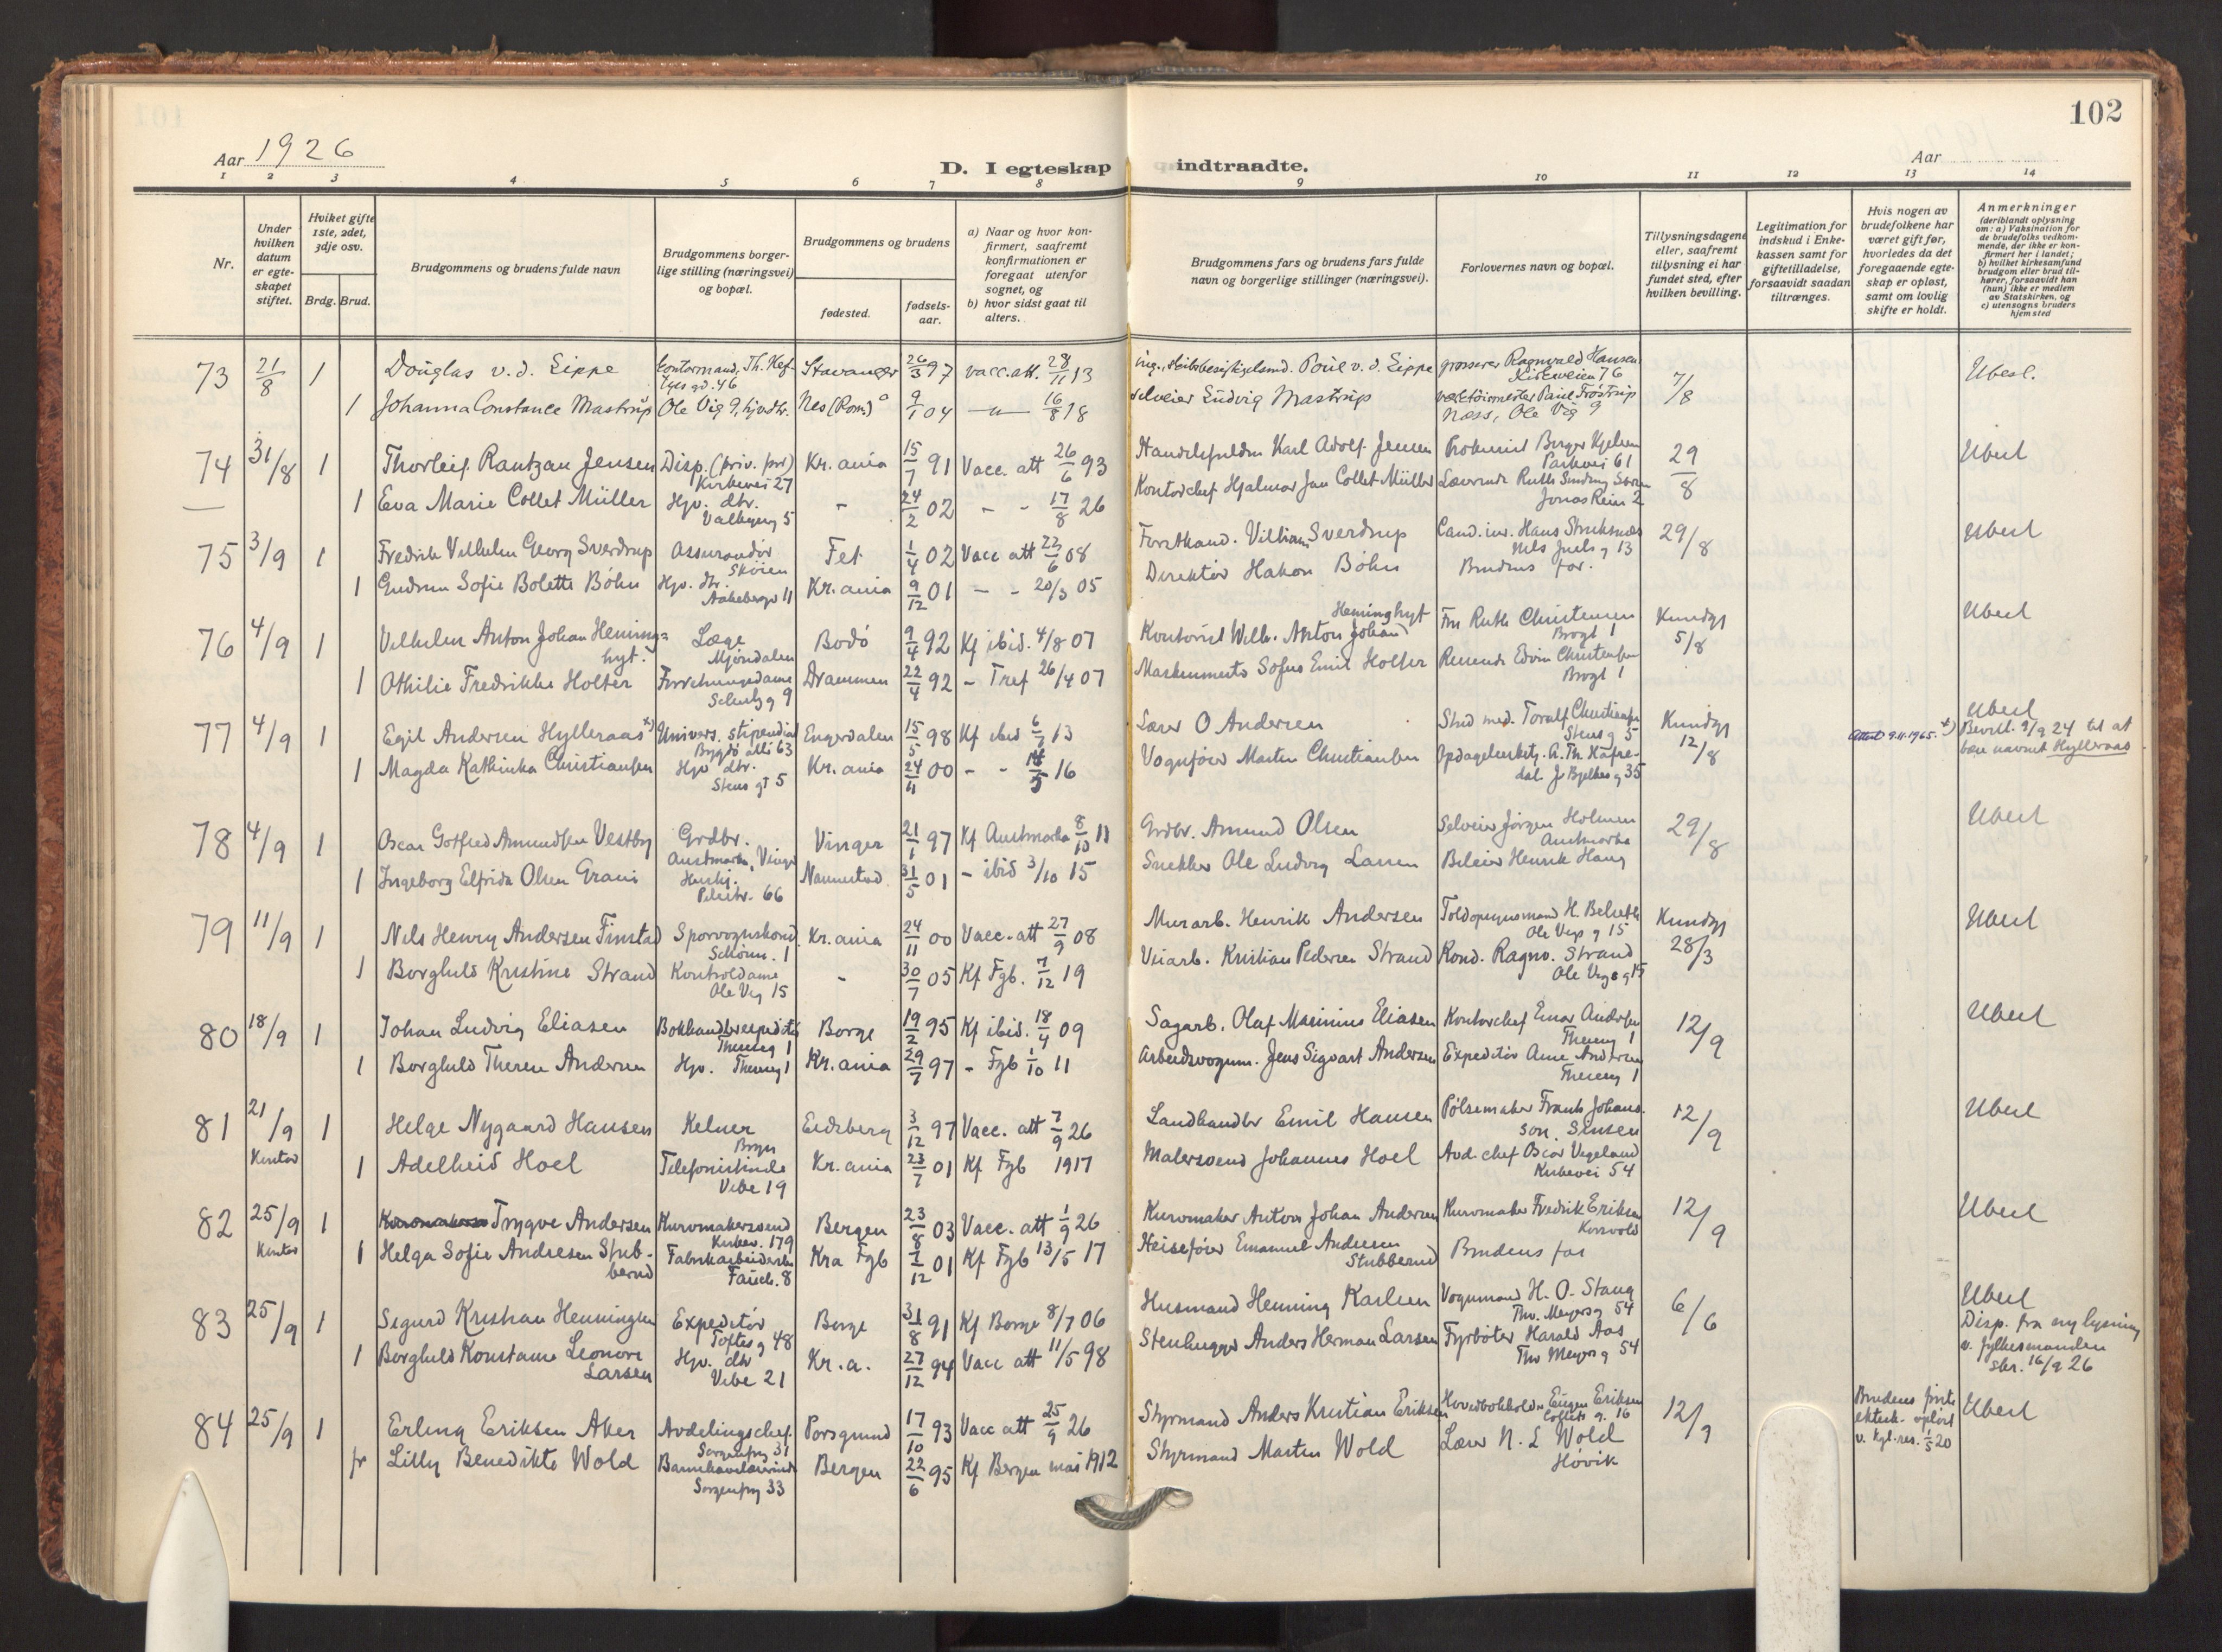 102
Aar 1926
D. I egteskap indtraadte.
Aar
1 2 3 4 5 6 7 8 9 10 11 12 13 14
Nr.
Under hvilken datum er egteskapet stiftet.
Hviket gifte 1ste, 2det, 3dje osv.
Brdg. Brud.
Brudgommens og brudens fulde navn
Brudgommens borgerlige stilling (næringsvei) og bopæl.
Brudgommens og brudens
fødested.
fødselsaar.
a) Naar og hvor konfirmert, saafremt konfirmationen er foregaat utenfor sognet, og
b) hvor sidst gaat til alters.
Brudgommens fars og brudens fars fulde navn og borgerlige stillinger (næringsvei).
Forlovernes navn og bopæl.
Tillysningsdagene eller, saafremt tillysning ei har fundet sted, efter hvilken bevilling.
Legitimation for indskud i Enkekassen samt for giftetilladelse, forsaavidt saadan tiltrænges.
Hvis nogen av brudefolkene har været gift før, hvorledes da det foregaaende egteskap er opløst, samt om lovlig skifte er holdt.
Anmerkninger
(deriblandt oplysning om: a) Vaksination for de brudefolks vedkommende, der ikke er konfirmert her i landet; b) hvilket kirkesamfund brudgom eller brud tilhører, forsaavidt han (hun) ikke er medlem av Statskirken, og c) utensogns bruders hjemsted
73 21/8 1 Douglas v. d. Lippe Stavanger 26/3 97 vacc. att. 28/11 13 Poul v. d. Lippe grosserer Ragnvald Hansen Kirkeveien 76 7/8 Ubesl.
1 Johanna Constance Mastrup Ole Vig 9, hjv. dtr. Nes (Rom.) 9/1 04 -"- 16/8 18 selveier Ludvig Mastrup Næss, Ole Vig 9
74 31/8 1 Thorleif Rantzau Jensen Disp. (priv. frt) Kirkevei 27 Kr.ania 15/7 91 Vacc. att 26/6 93 Karl Adolf Jensen Prokurist Birger Kjelsen Parkvei 61 29/8 Ubesl
1 Eva Marie Collet Müller Hjv. dtr. - 24/2 02 - - 17/8 26 Kontorchef Hjalmar Jan Collet Müller Jonas Rein 2
75 3/9 1 Fredrik Vilhelm Georg Sverdrup Assurandør Skøien Fet 1/4 02 Vacc att 22/6 08 Forstkand. Villiam Sverdrup Cand. jur. Hans Nils Juels g 13 29/8 Ubesl
1 Gudrun Sofie Bolette Böhn Hjv. dtr. Aakebergv 11 Kr.ania 9/12 01 - - 20/3 05 Direktör Hakon Böhn Brudens far.
76 4/9 1 Vilhelm Anton Johan Heminghyt. Læge Mjöndalen Bodö 9/4 92 Kf ibid. 4/8 07 Kontorist Wilh. Anton Johan Heminghyt Fru Ruth Christensen Brogt 1 Kundgj 5/8 Ubesl
1 Othilie Fredrikke Holter Schultz g 9 Drammen 22/4 92 - Tref 26/4 07 Maskinmester Sofus Emil Holter Edvin Christensen Brogt 1
77 4/9 1 Egil Andersen Hylleraas x) Univers. stipendiat Bygdö allé 63 Engerdalen 15/5 98 Kf ibid 6/7 13 Lærer O Andersen Stud med. Toralf Christiansen Stens g 5 Kundgj 12/8 Attest 9.11.1965. Ubesl x) Bevill. 9/9 24 til at bære navnet Hylleraas
1 Magda Kathinka Christiansen Hjv dtr. Stens gt 5 Kr.ania 24/11 00 - - 14/5 16 Vognfører Martin Christiansen J. Bjelkes g 35
78 4/9 1 Oscar Gotfred Amundsen Vestby Grdbr. Austmarka, Vinger Vinger 21/1 97 Kf Austmarka 8/10 11 Grdbr. Amund Olsen Selveier Jörgen Holmen Austmarka 29/8 Ubesl
1 Ingeborg Elfrida Olsen Grani Hushj. Pilestr. 66 Nannestad 31/5 01 - ibid 3/10 15 Snekker Ole Ludvig Larsen Bileier Henrik Haug
79 11/9 1 Nils Henry Andersen Finstad Sporvognskond. Schönn. 1 Kr.ania 24/11 00 Vacc. att 27/9 08 Murarb. Henrik Andersen Toldopsynsmand H. Ole Vigs g 15 Kundgj 28/3 Ubesl
1 Borghild Kristine Strand Kontordame Ole Vig 15 - 30/7 05 Kf Fgb. 7/12 19 Veiarb. Kristian Pedersen Strand Kond. Ragnv. Strand Ole Vigs g 15
80 18/9 1 Johan Ludvig Eliasen Theresg 1 Borge 19/2 95 Kf ibid. 18/4 09 Sagarb. Olaf Marinius Eliasen Kontorchef Einar Andersen Theresg 1 12/9 Ubesl
1 Borghild Therese Andersen Hjv. Theresg 1 Kr.ania 29/7 97 - Fgb 1/10 11 Arbeidsvognm. Jens Sigvart Andersen Expeditör Arne Andersen Theresg 1
81 21/9 Kontor 1 Helge Nygaard Hansen Kelner Bryn Eidsberg 3/12 97 Vacc. att 7/9 26 Landhandler Emil Hansen Pölsemaker Frank Johansson. Sinsen 12/9 Ubesl
1 Adelheid Hoel Telefonistinde Vibe 19 Kr.ania 23/7 01 Kf Fgb 1917 Malersvend Johannes Hoel Avd. chef Oscar Vegeland Kirkevei 54
82 25/9 Kontor 1 Trygve Andersen Kurvmakersvend Kirkev. 179 Bergen 23/8 03 Vacc. att 1/9 26 Kurvmaker Anton Johan Andersen Kurvmaker Fredrik Eriksen Korsvold 12/9 Ubesl
1 Helga Sofie Andresen Stubberud Fabrikarbeiderske Fauch. 8 Kra Fgb 1/12 01 Kf Fgb 13/5 17 Heisefører Emanuel Andresen Stubberud Brudens far
83 25/9 1 Sigurd Kristian Henningsen Expeditör Toftes g 48 Borge 31/8 91 Kf Borge 8/7 06 Husmand Henning Karlsen Vognmand H. O. Stang Thv. Meyers g 54 6/6 Ubesl Disp. fra ny lysning v. fylkesmanden skr. 16/9 26
1 Borghild Konstance Leonore Larsen Hjv. dtr Vibe 21 Kr.a. 27/12 94 Vacc att 11/5 98 Stenhugger Anders Herman Larsen Fyrbøter Harald Aas Thv Meyers g 54
84 25/9 1 Erling Eriksen Aker Avdelingschef. Sorgenfrig 31 Porsgrund 17/10 93 Vacc att 25/9 26 Styrmand Anders Kristian Eriksen Hovedbokholder Eugen Eriksen Colletts g. 16 12/9 Brudens første ektesk. opløst v. kgl. res. 1/5 20 Ubesl
fr Lilly Benedikte Wold Barnehavelærerinde Sorgenfrig 33 Bergen 22/6 95 Kf Bergen mai 1912 Styrmand Martin Wold Lærer N. L Wold Høvik